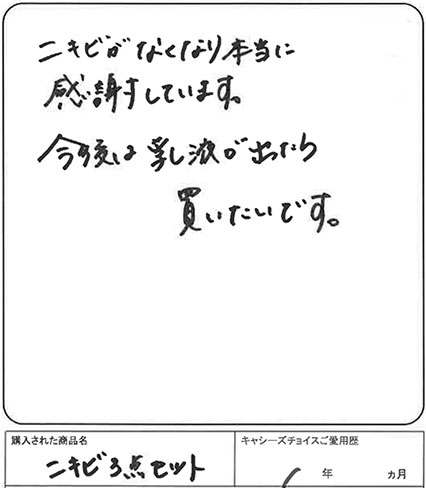 ニキビがなくなり本当に
感謝しています。
今後は乳液が出たら
買いたいです。
購入された商品名
キャシーズチョイスご愛用歴
ニキビ3点セット
年 ヵ月